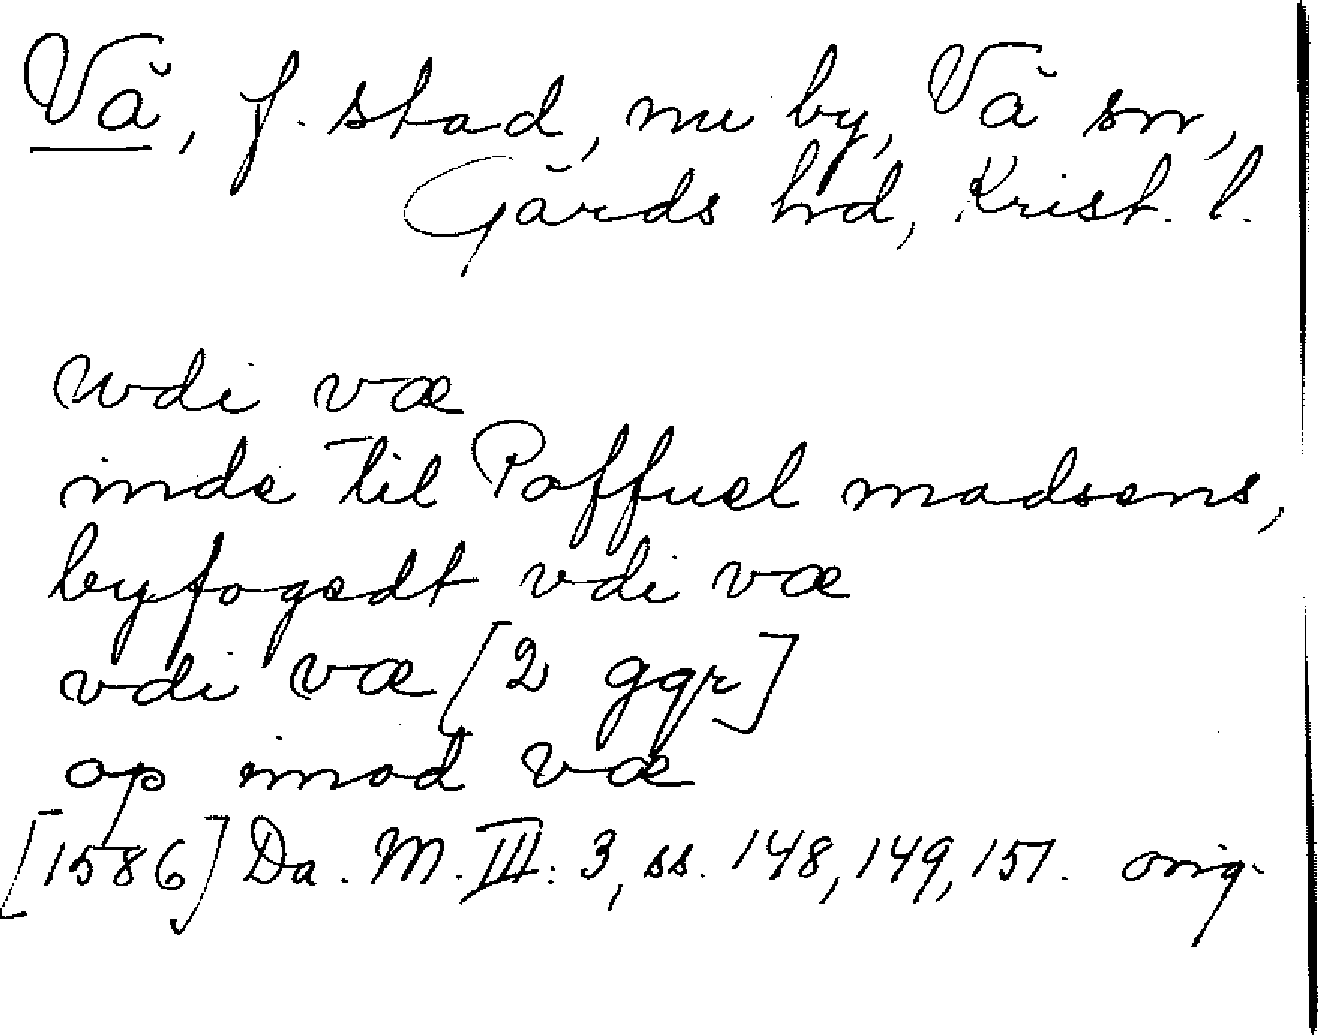 Vå, f. stad, nu by, Vå sn,
Gärds hd, Krist. l.
wdi væ
inde til Poffuel madsens,
byfogedt vdi væ
vdi væ [2 ggr]
op imod væ
[1586] Da. M. III: 3, ss. 148, 149, 151. orig.